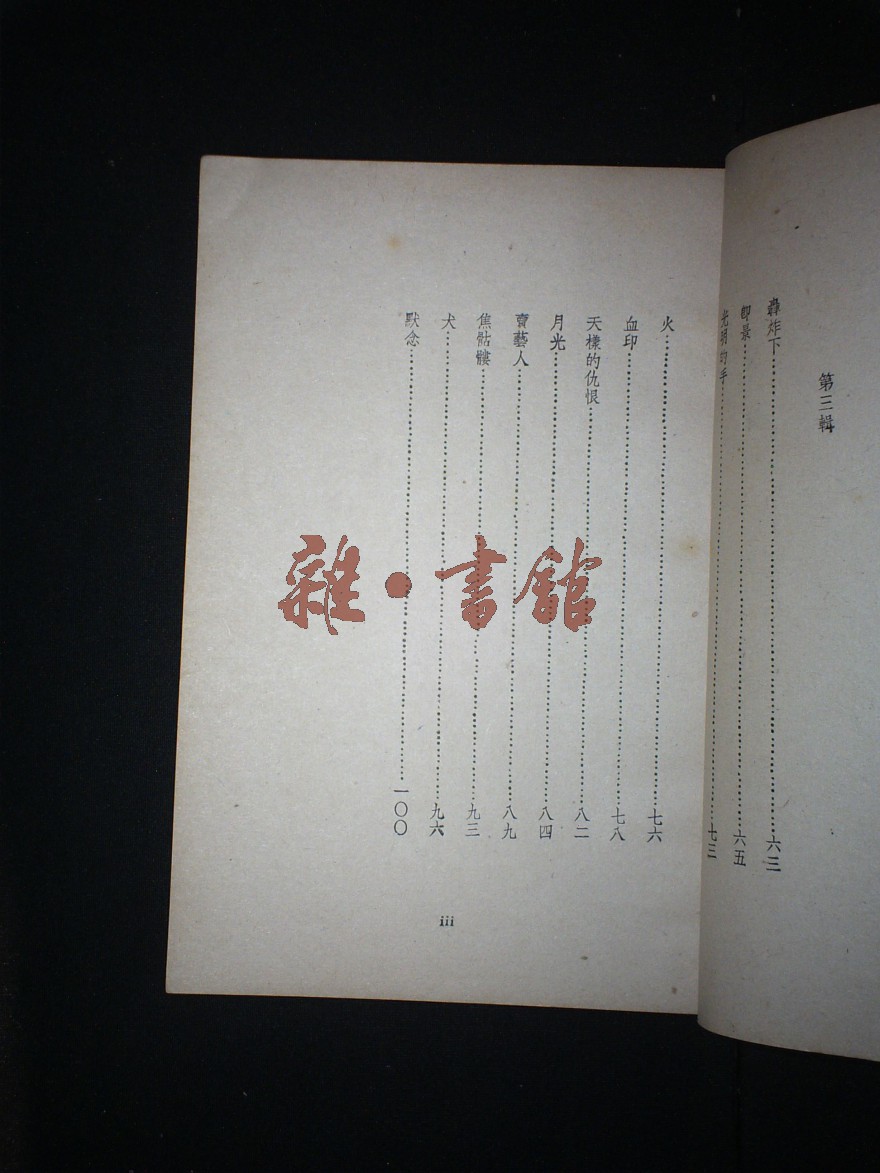 第三輯
轟炸下……六三
即景……六五
光明的手……七三
火……七六
血印……七八
天樣的仇恨……八二
月光……八四
賣藝人……八九
焦骷髏……九三
犬……九六
默念……一〇〇
iii
雜·書館